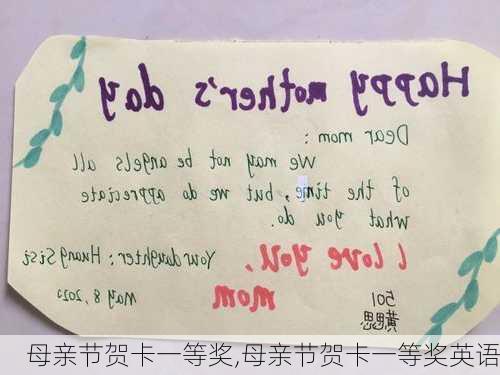 Happy mother's day
Dear mom:
We may not be angels all
of the time, but we do appreciate
what you do.
I love you,
mom
Your daughter: Huang Sisi
May 8, 2022
501
黄思思
母亲节贺卡一等奖,母亲节贺卡一等奖英语